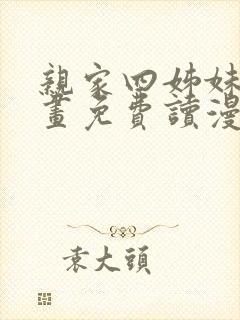 親家四姊妹
畫免費讀漫
袁大頭